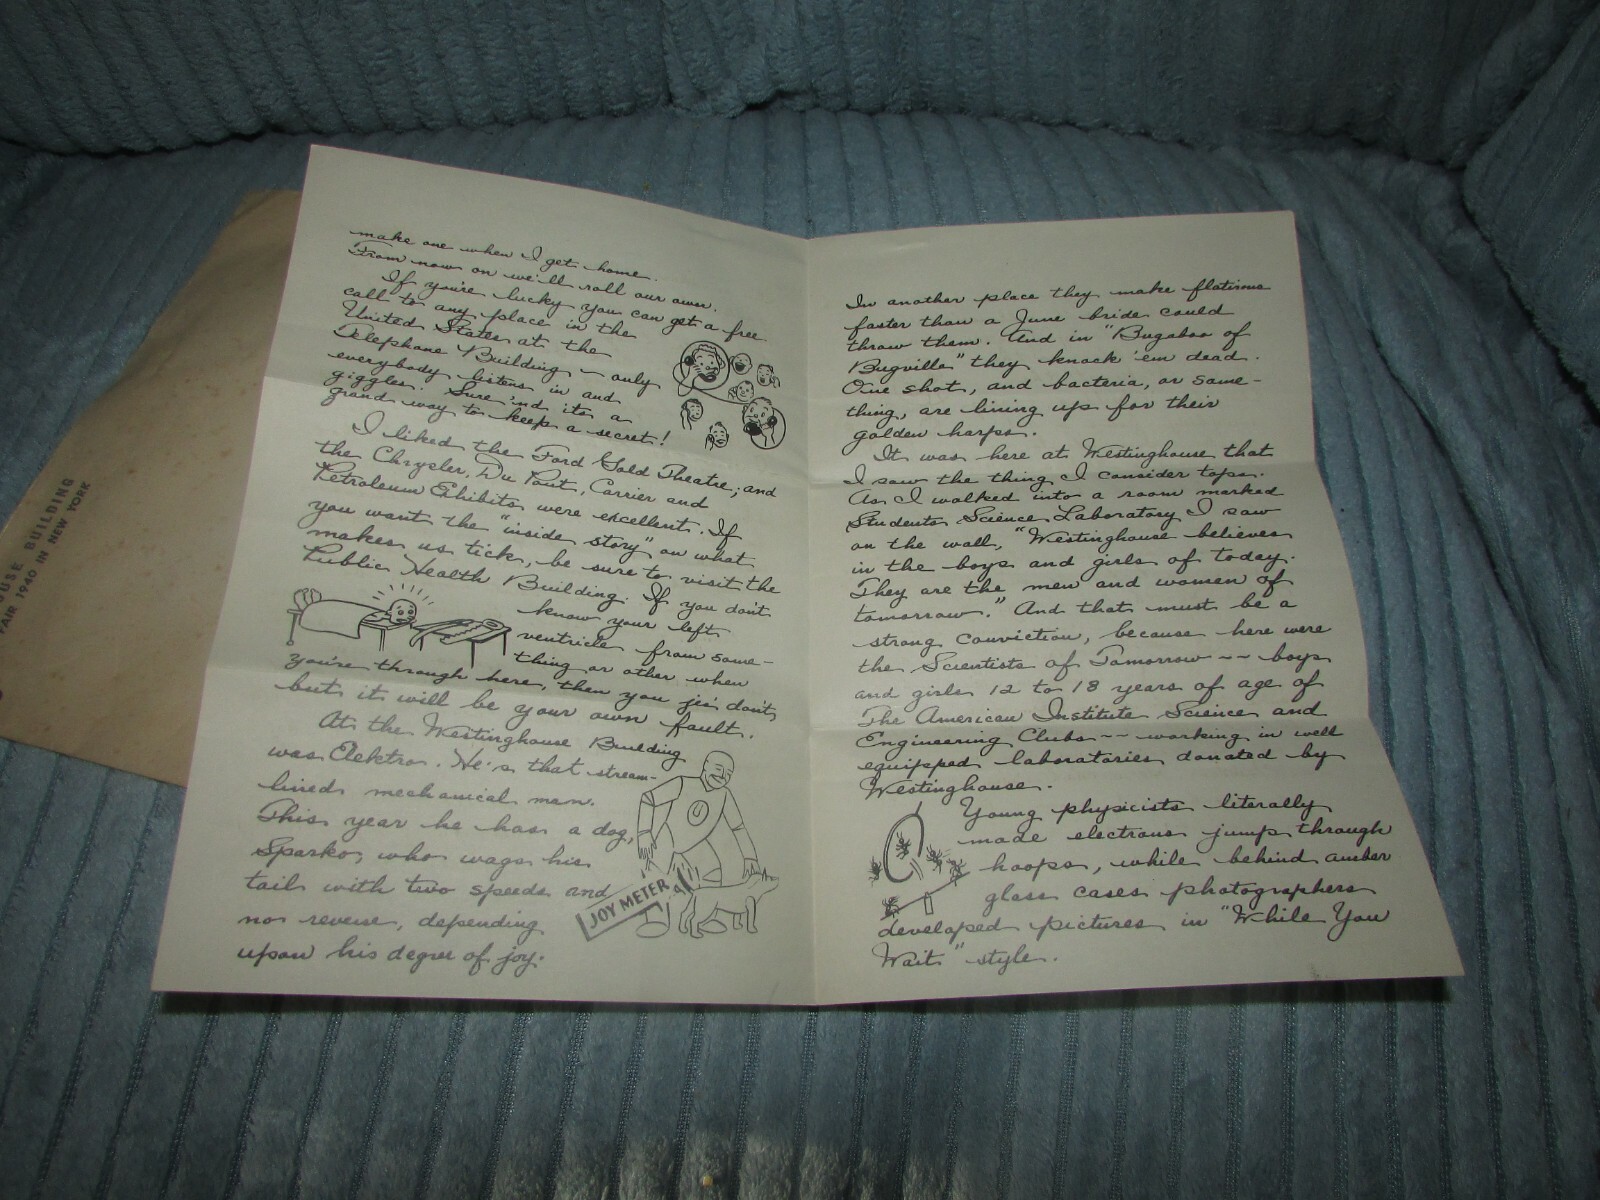 make one when I get home.
From now on we'll roll our own.
If you're lucky you can get a free
call to any place in the
United States at the
Telephone Building — only
everybody listens in and
giggles. Sure 'nd its a
grand way to keep a secret!
I liked the Ford Gold Theatre; and
the Chrysler, Du Pont, Carrier and
Petroleum Exhibits were excellent. If
you want the "inside story" on what
makes us tick, be sure to visit the
Public Health Building. If you don't
know your left
ventricle from some-
thing or other when
you're through here, then you jis' don't,
but it will be your own fault.
At the Westinghouse Building
was Elektro. He's that stream-
lined mechanical man.
This year he has a dog,
Sparko, who wags his
tail with two speeds and
no reverse, depending
upon his degree of joy.
JOY METER
In another place they make flatirons
faster than a June bride could
throw them. And in "Bugaboo of
Bugville" they knock 'em dead.
One shot, and bacteria, or some-
thing, are lining up for their
golden harps.
It was here at Westinghouse that
I saw the thing I consider tops.
As I walked into a room marked
Students Science Laboratory I saw
on the wall, "Westinghouse believes
in the boys and girls of today.
They are the men and women of
tomorrow." And that must be a
strong conviction, because here were
the Scientists of Tomorrow -- boys
and girls 12 to 18 years of age of
The American Institute Science and
Engineering Clubs -- working in well
equipped laboratories donated by
Westinghouse.
Young physicists literally
made electrons jump through
hoops, while behind amber
glass cases photographers
developed pictures in "While You
Wait" style.
USE BUILDING
FAIR 1940 IN NEW YORK